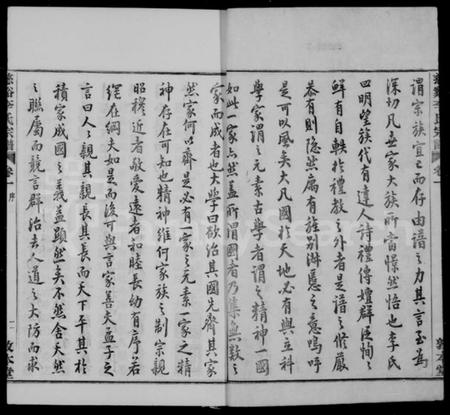 謂宗族宜而存由譜之力其言至為
深切凡世家大族所當憬然悟也李氏
四明望族代有達人詩禮傳嬗群臣恂恂
鮮有自軼於禮教之外者是譜之修嚴
恭有則隱然寓有旌別淑慝之意嗚呼
是可以風矣大凡國於天地必有與立科
學家謂之元素古學者謂之精神一國
如此一家亦然蓋所謂國者乃集無數之
家而成者也大學曰欲治其國先齊其家
然家何以齊是必有一家之元素一家之精
神存在可知也精神維何家族之制宗親
昭穆近者敬愛遠者和睦長幼有序若
網在綱夫如是而後可與言家善夫孟子之
言曰人人親其親長其長而天下平其於
積家成國之義孟顯然矣不然舍天然
之聯屬而競言群治去人道之大防而求
慈谿李氏宗譜
卷一 序
二
敦本堂
慈谿李氏宗譜
卷一
敦本堂